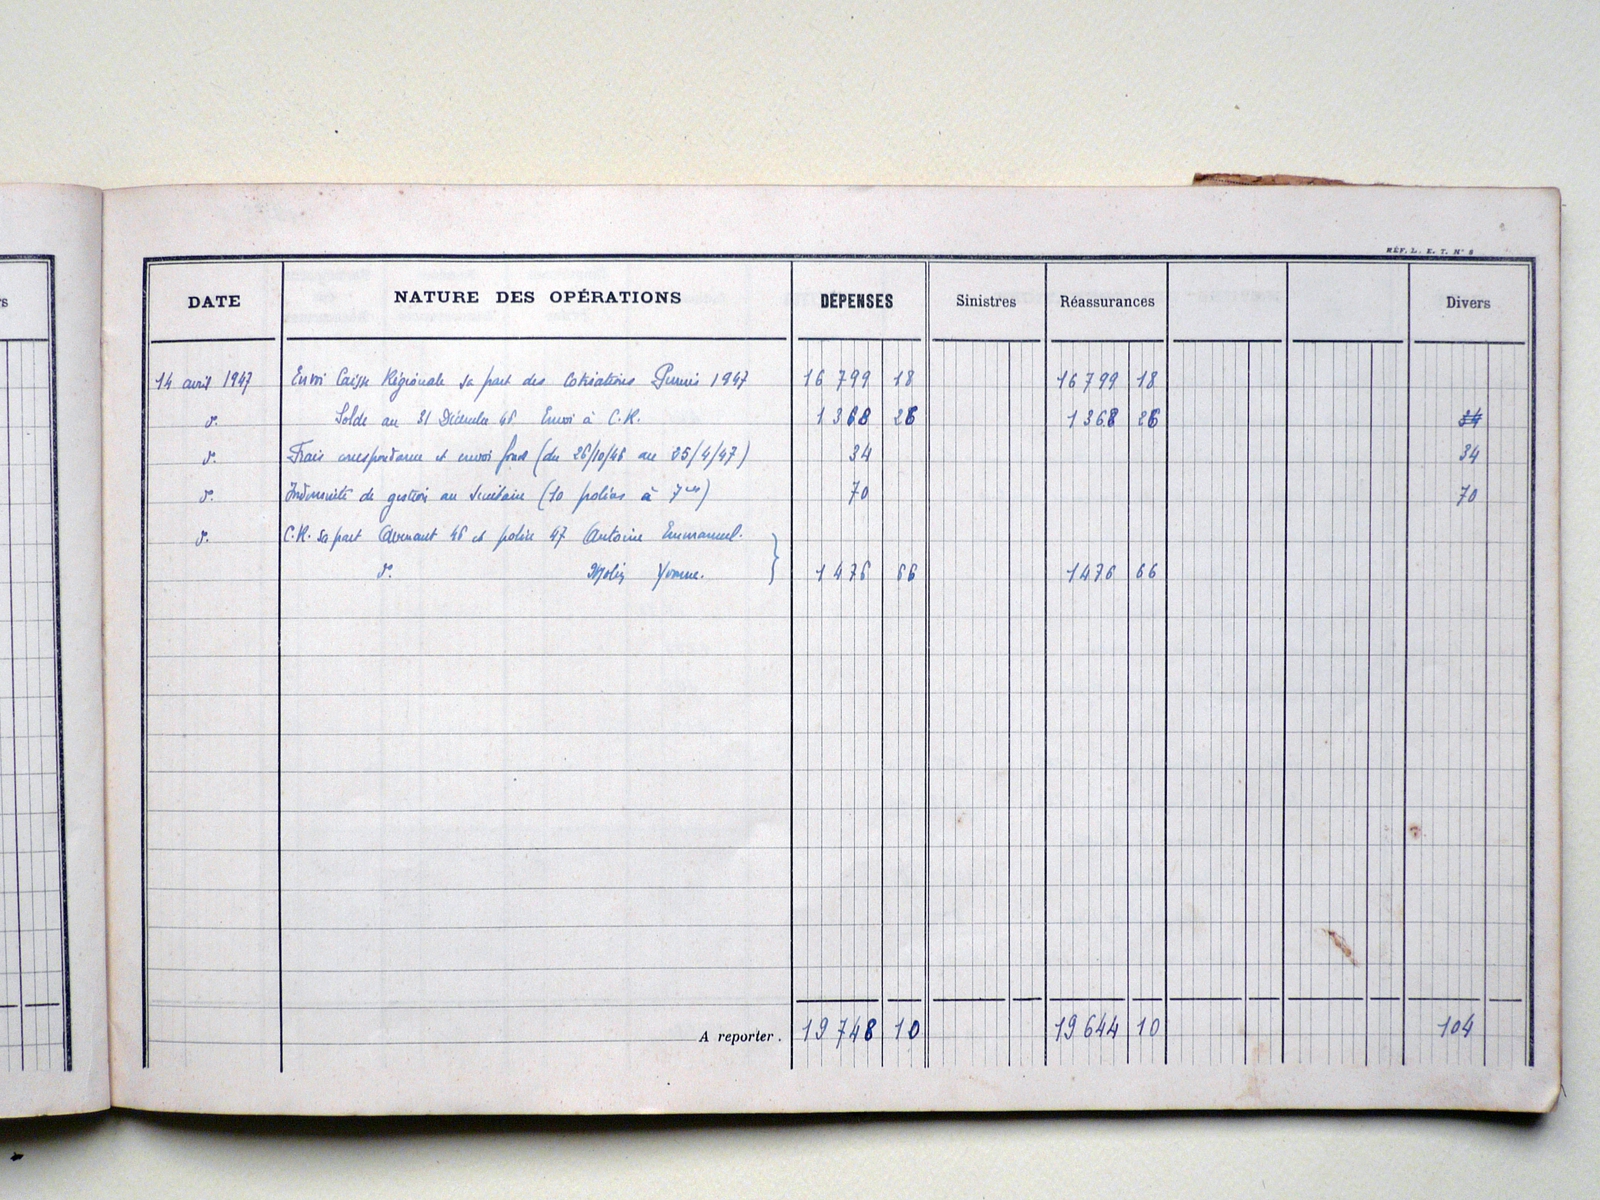 s
RÉF. L. E. T. N° 8
DATE NATURE DES OPÉRATIONS DÉPENSES Sinistres Réassurances Divers
14 avril 1947 Envoi Caisse Régionale sa part des Cotisations Permis 1947 16 799 18 16 799 18
d°. Solde au 31 Décembre 46 Envoi à C.R. 1 368 26 1 368 26 34
d°. Frais correspondance et envoi fond (du 26/10/46 au 05/4/47) 34 34
d°. Indemnité de gestion au Secrétaire (10 polices à 7 ) 70 70
d°. C.R. sa part Avenant 46 et police 47 Antoine Emmanuel.
d°. Yvonne. 1 476 66 1 476 66
A reporter. 19 748 10 19 644 10 104